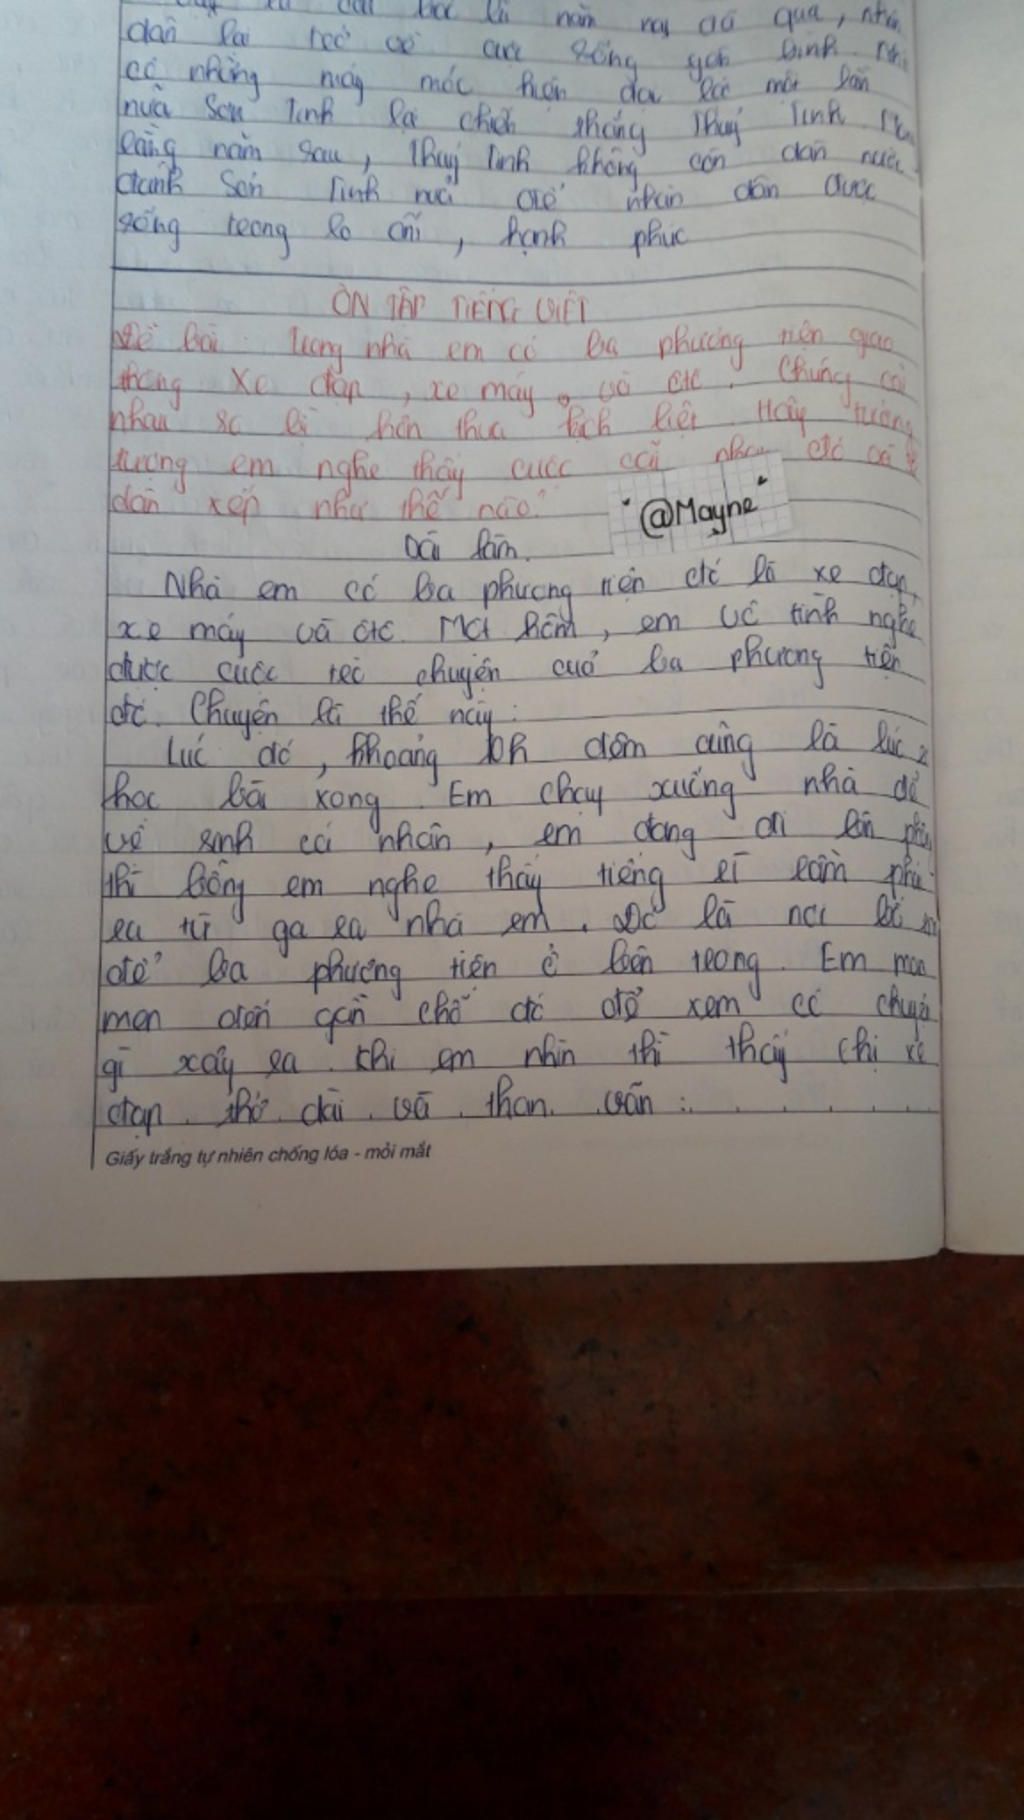 năm nay đã qua, nhân
dân lại trở về cuộc sống yên bình. Nhờ
có những máy móc hiện đại lại một lần
nữa Sơn Tinh lại chiến thắng Thuỷ Tinh.
rằng năm sau, Thuỷ Tinh không còn dân nước
đánh Sơn Tinh nữa để nhân dân được
sống trong lo ấm, hạnh phúc
ÔN TẬP TIẾNG VIỆT
Đề bài: Trong nhà em có ba phương tiện giao
thông xe đạp, xe máy và ôtô. Chúng cãi
nhau so bì hơn thua kịch liệt. Hãy tưởng
tượng em nghe thấy cuộc cãi nhau đó và
dàn xếp như thế nào?
"@Mayne"
Bài làm.
Nhà em có ba phương tiện đó là xe đạp,
xe máy và ôtô. Một hôm, em vô tình nghe
được cuộc trò chuyện của ba phương tiện
đó. Chuyện là thế này:
Lúc đó, khoảng 10h đêm cũng là lúc
học bài xong. Em chạy xuống nhà để
vệ sinh cá nhân, em đang đi lên
thì bỗng em nghe thấy tiếng rì rầm phát
ra từ ga ra nhà em. Đó là nơi bố
để ba phương tiện ở bên trong. Em mon
men đến gần chỗ đó để xem có chuyện
gì xảy ra. Khi em nhìn thì thấy chị xe
đạp thở dài và than vãn:
Giấy trắng tự nhiên chống lóa - mỏi mắt